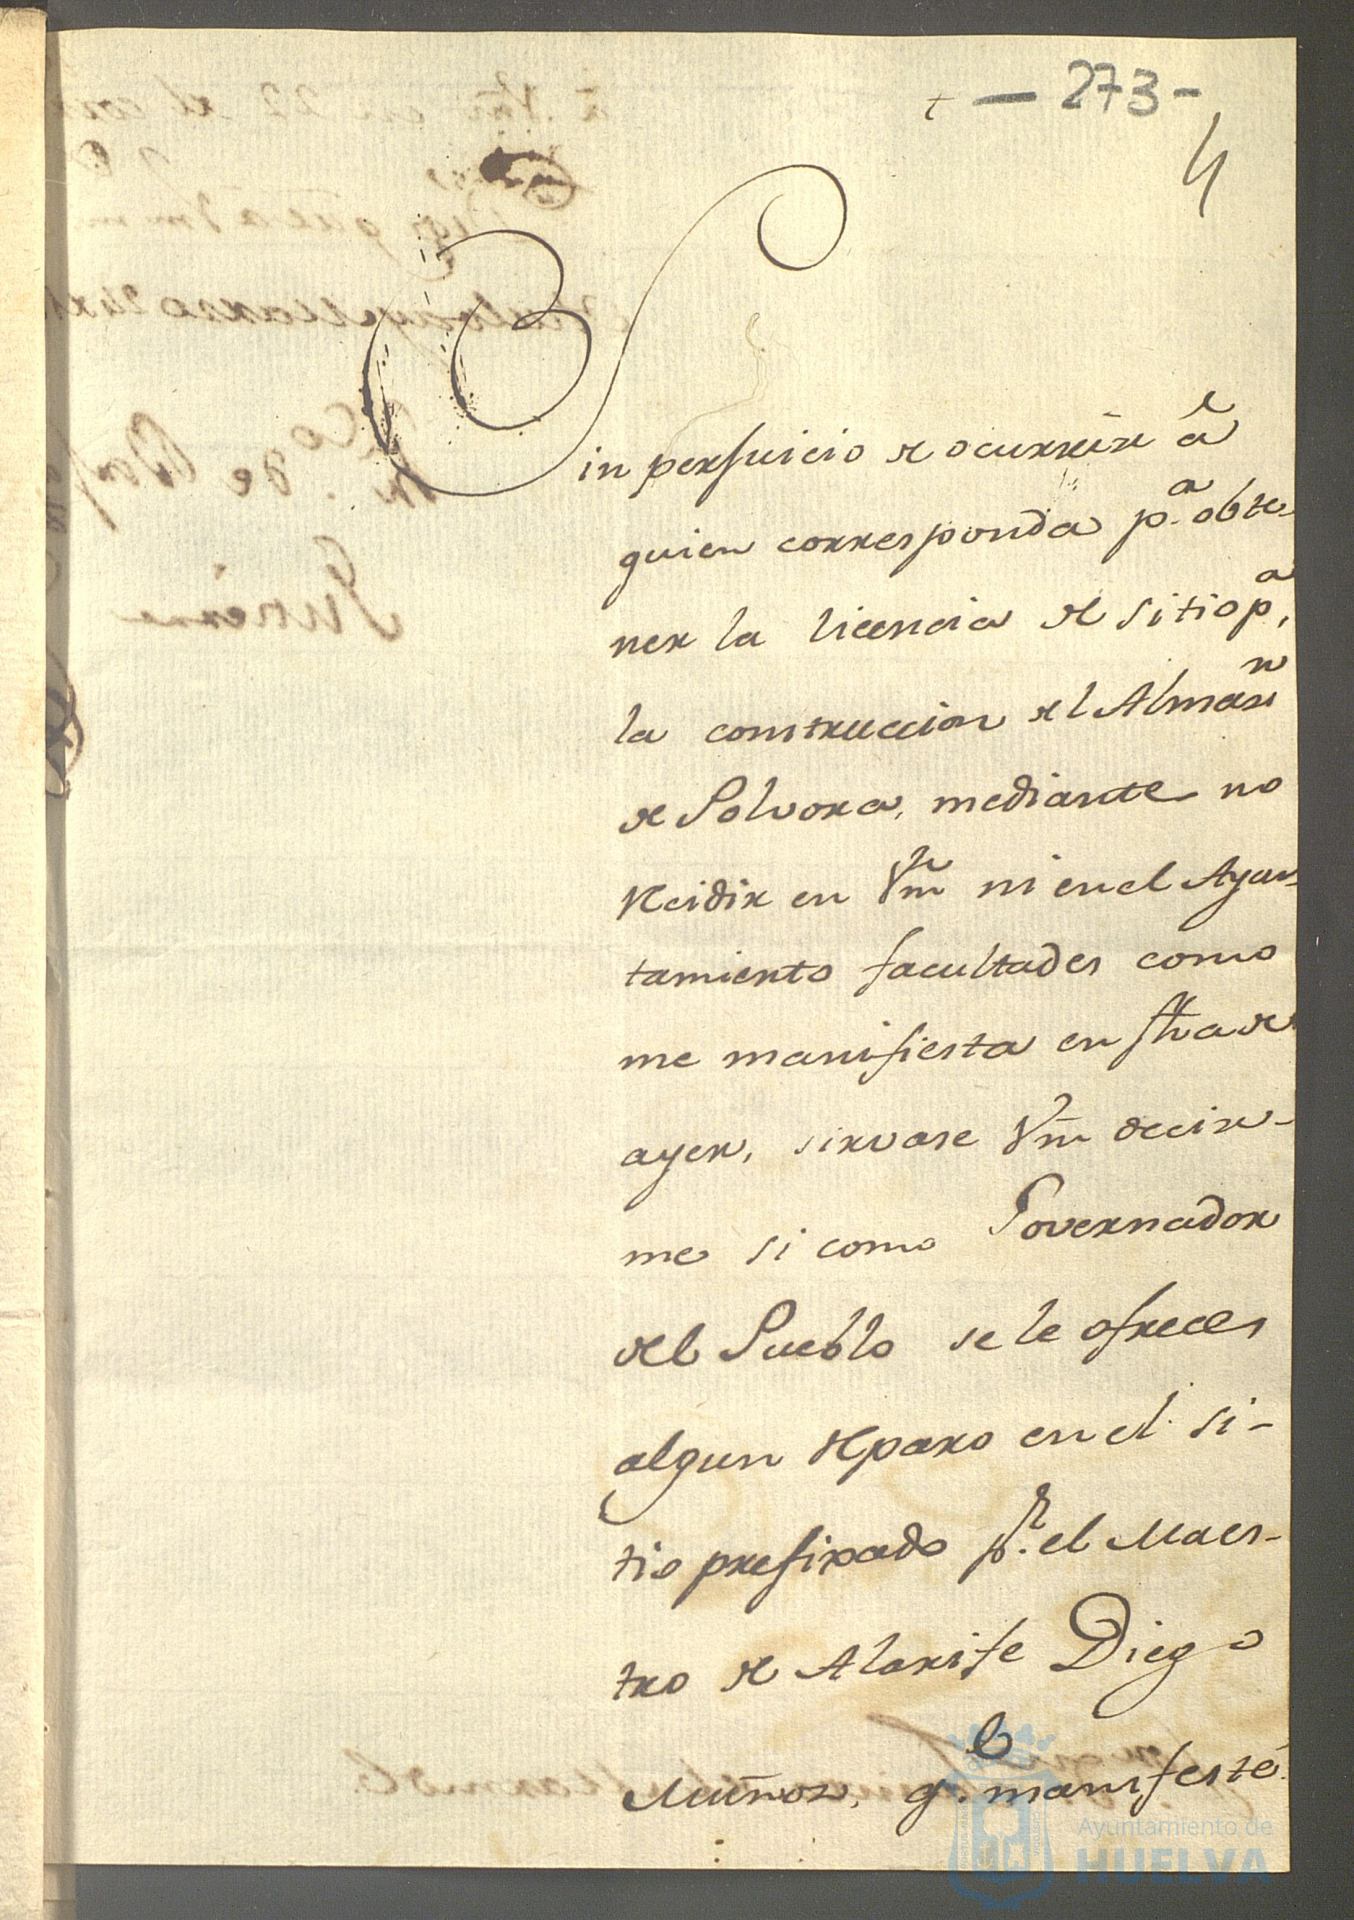 t — 273 -
4
Sin perjuicio de ocurrir á
quien corresponda p.a obte-
ner la licencia de sitio p.a
la construccion del Almasn
de Polvora, mediante no
recidir en Vm ni en el Ayun-
tamiento facultades como
me manifiesta en
ayer, sirvase Vm decir-
me si como Governador
del Pueblo se le ofrece
algun reparo en el si-
tio prefixado p.r el Maes-
tro de Alarife Diego
Muñoz, q.e manifesté
Ayuntamiento de
HUELVA